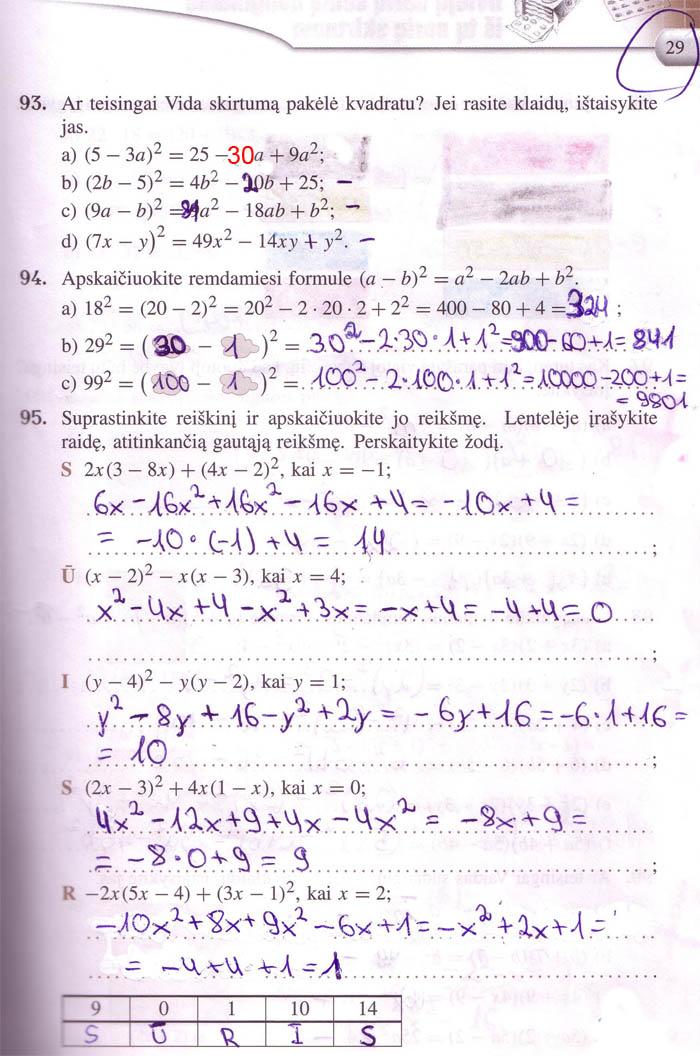 29
93. Ar teisingai Vida skirtumą pakėlė kvadratu? Jei rasite klaidų, ištaisykite
jas.
a) (5 − 3a)² = 25 −30a + 9a²;
b) (2b − 5)² = 4b² − 20b + 25; −
c) (9a − b)² = 81a² − 18ab + b²; −
d) (7x − y)² = 49x² − 14xy + y². −
94. Apskaičiuokite remdamiesi formule (a − b)² = a² − 2ab + b².
a) 18² = (20 − 2)² = 20² − 2 · 20 · 2 + 2² = 400 − 80 + 4 = 324 ;
b) 29² = ( 30 − 1 )² = 30² − 2·30·1+1² = 900−60+1 = 841
c) 99² = ( 100 − 1 )² = 100² − 2·100·1+1² = 10000−200+1=
= 9801
95. Suprastinkite reiškinį ir apskaičiuokite jo reikšmę. Lentelėje įrašykite
raidę, atitinkančią gautąją reikšmę. Perskaitykite žodį.
S 2x(3 − 8x) + (4x − 2)², kai x = −1;
6x − 16x² + 16x² − 16x + 4 = −10x + 4 =
= −10 · (−1) + 4 = 14 ;
Ū (x − 2)² − x(x − 3), kai x = 4;
x² − 4x + 4 − x² + 3x = −x + 4 = −4 + 4 = 0
;
I (y − 4)² − y(y − 2), kai y = 1;
y² − 8y + 16 − y² + 2y = −6y + 16 = −6·1 + 16 =
= 10 ;
S (2x − 3)² + 4x(1 − x), kai x = 0;
4x² − 12x + 9 + 4x − 4x² = −8x + 9 =
= −8 · 0 + 9 = 9 ;
R −2x(5x − 4) + (3x − 1)², kai x = 2;
−10x² + 8x + 9x² − 6x + 1 = −x² + 2x + 1 =
= −4 + 4 + 1 = 1 .
9 0 1 10 14
S Ū R I S